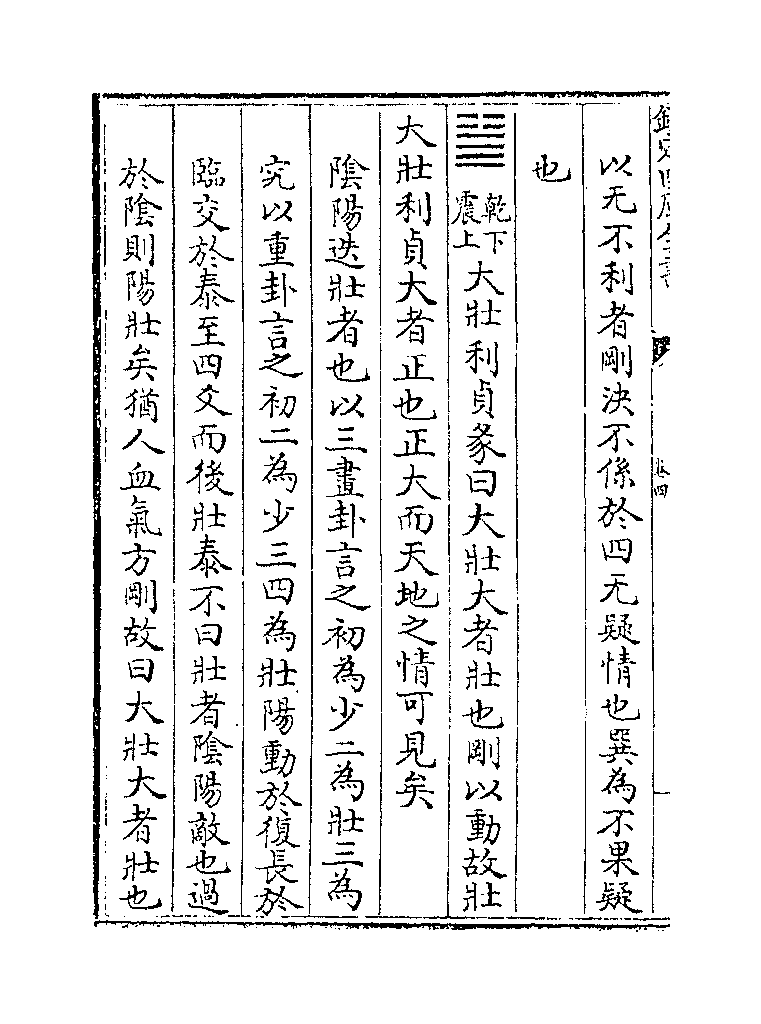 以无不利者剛決不係於四无疑情也巽為不果疑
也
䷡乾下震上大壯利貞彖曰大壯大者壯也剛以動故壯
大壯利貞大者正也正大而天地之情可見矣
陰陽迭壯者也以三畫卦言之初為少二為壯三為
究以重卦言之初二為少三四為壯陽動於復長於
臨交於泰至四爻而後壯泰不曰壯者陰陽敵也過
於陰則陽壯矣猶人血氣方剛故曰大壯大者壯也
卷四